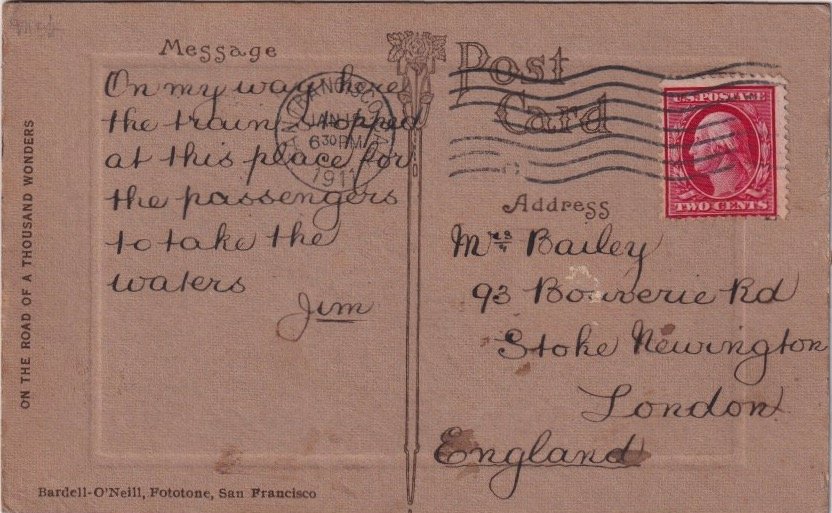 Message
On my way here
the train stopped
at this place for
the passengers
to take the
waters
Jim
Post
Card
SAN FRANCISCO, CAL.
JAN
6 30 PM
1911
U.S. POSTAGE
TWO CENTS
Address
Mrs Bailey
93 Bouverie Rd
Stoke Newington
London
England
ON THE ROAD OF A THOUSAND WONDERS
Bardell-O'Neill, Fototone, San Francisco